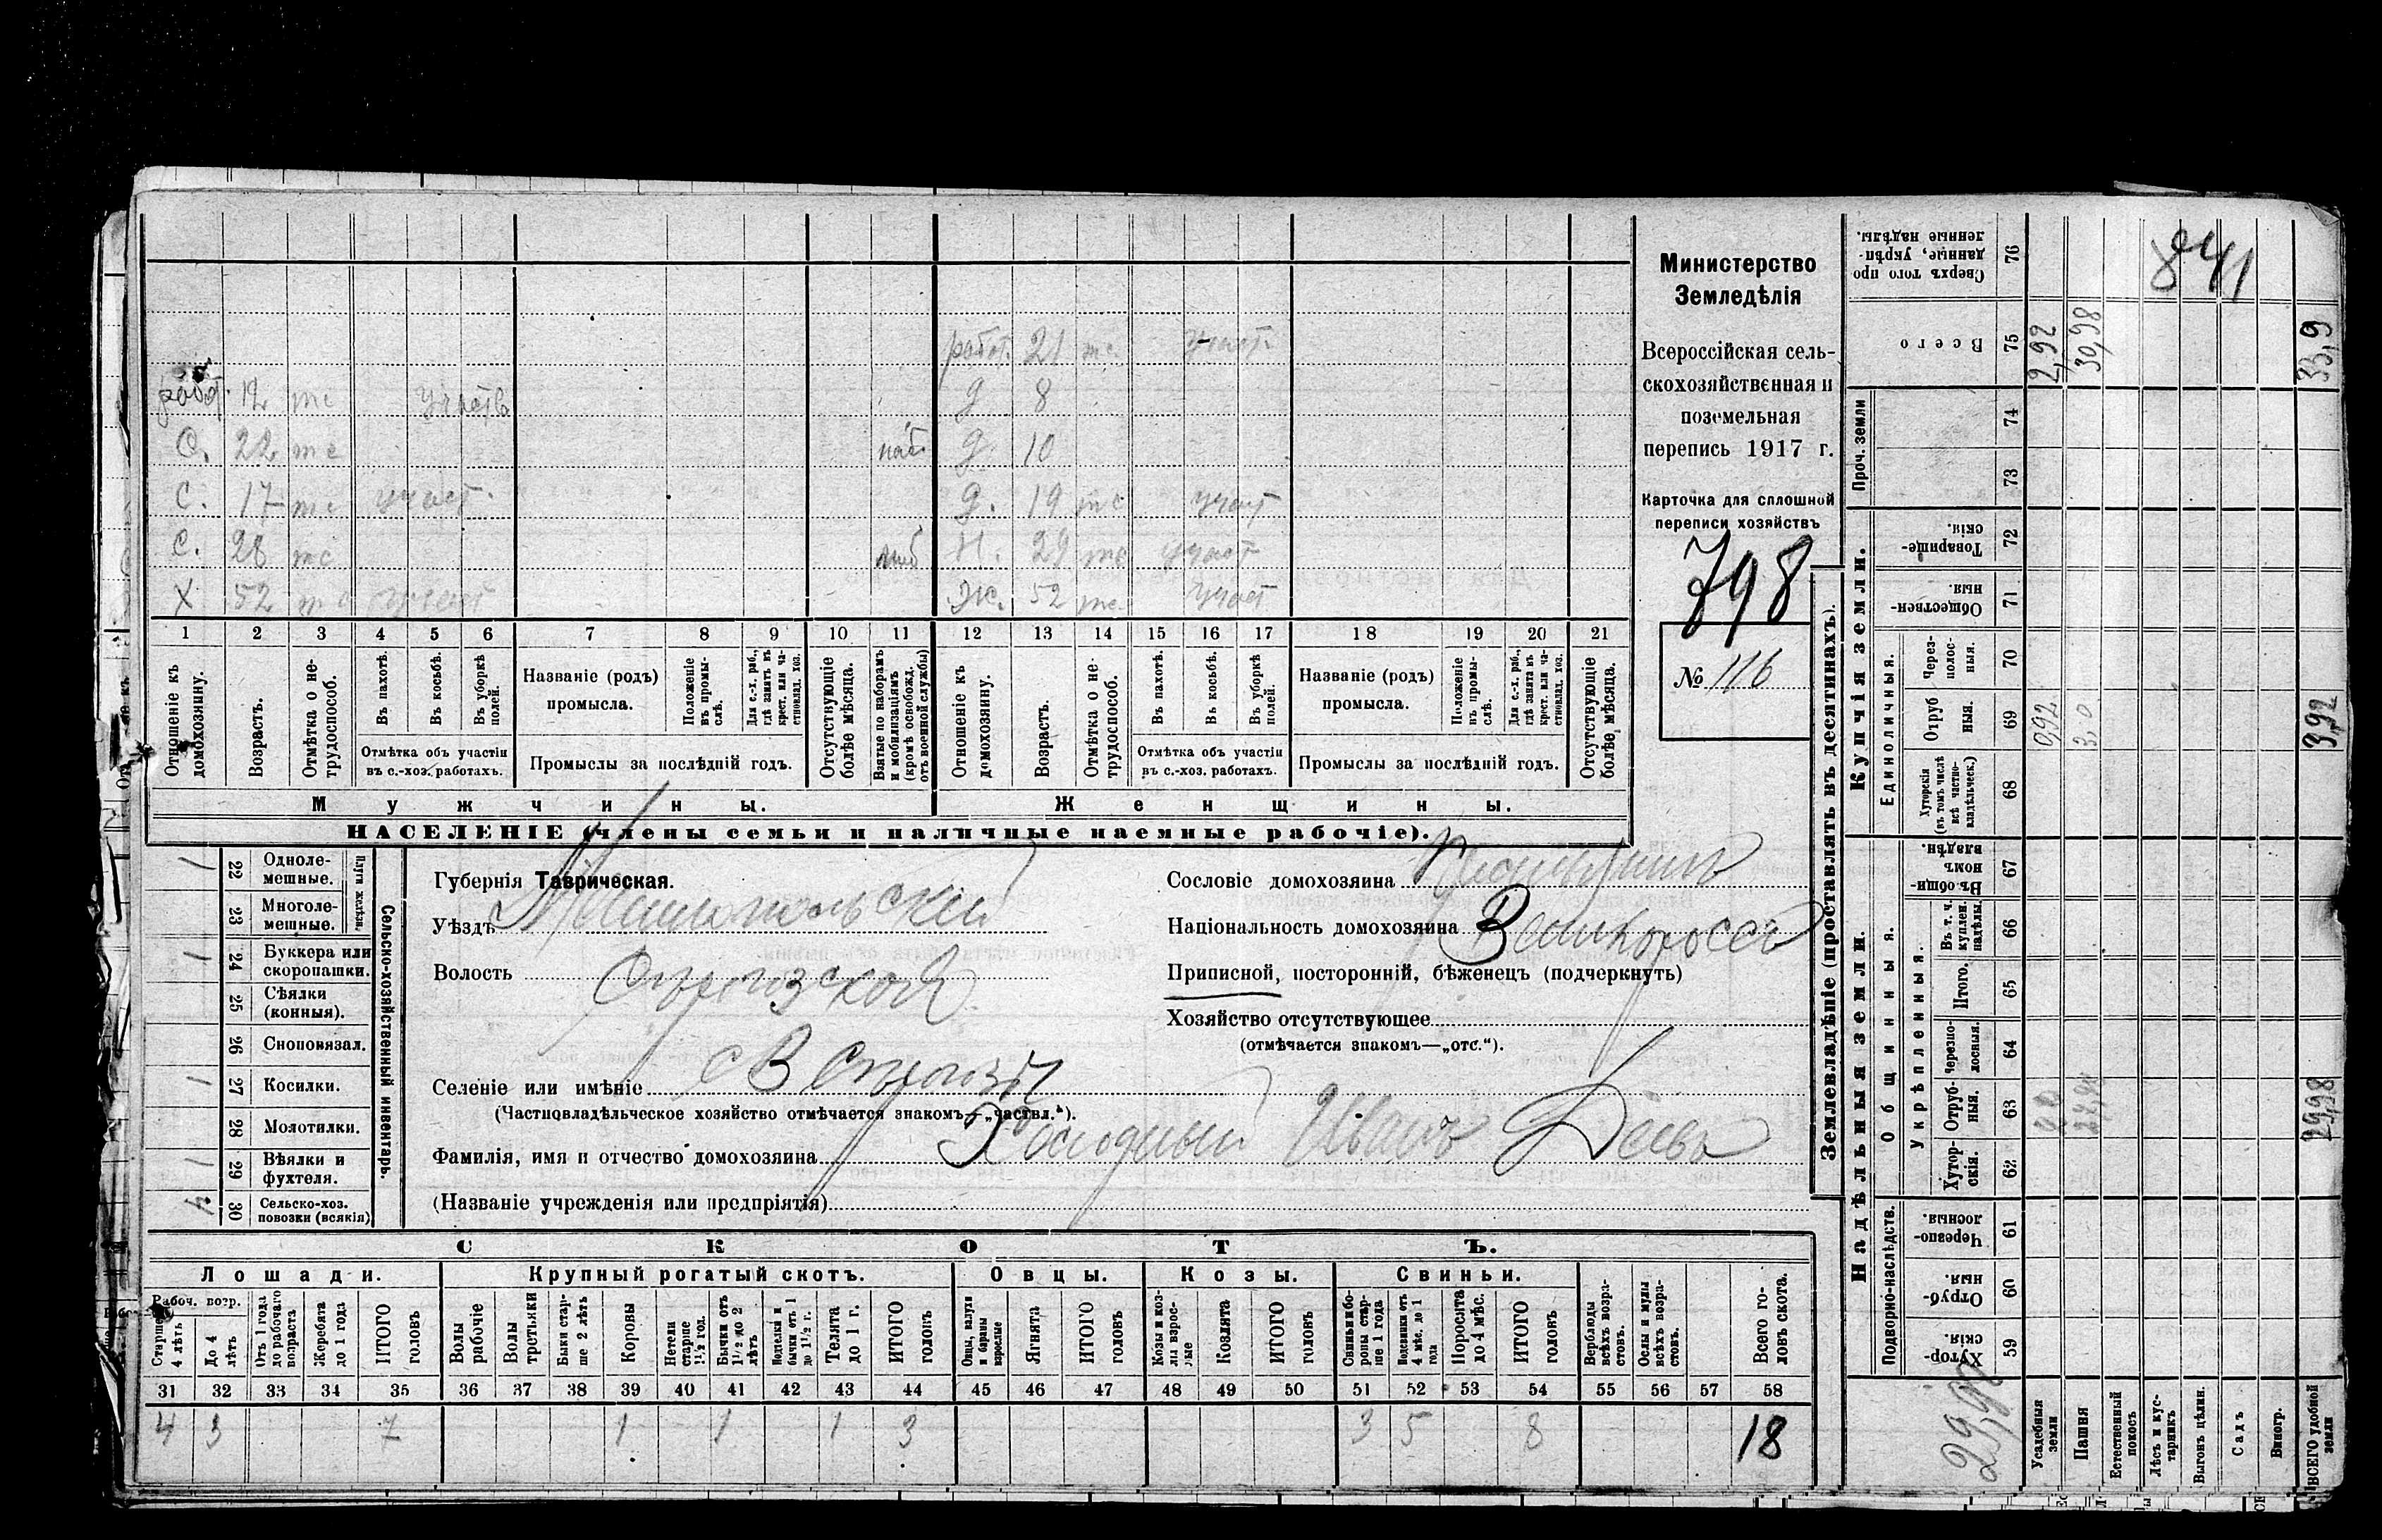 Министерство
Земледѣлія
Всероссійская сель-
скохозяйственная и
поземельная
перепись 1917 г.
Карточка для сплошной
переписи хозяйствъ
798
№ 116
841
работ. 21 тс. участ.
работ. 12 тс участв д 8
С. 22 тс д 10
С. 17 тс участ. д. 19 тс участ
С. 28 тс Н. 29 тс участ
Х 52 тс участ Ж. 52 тс. участ
1 2 3 4 5 6 7 8 9 10 11 12 13 14 15 16 17 18 19 20 21
Отношеніе къ домохозяину.
Возрастъ.
Отмѣтка о не-трудоспособ.
Въ пахотѣ.
Въ косьбѣ.
Въ уборкѣ полей.
Отмѣтка объ участіи
въ с.-хоз. работахъ.
Названіе (родъ)
промысла.
Положеніе въ промы-слѣ.
Для с.-х. раб., гдѣ занятъ въ крест. или ча-стновлад. хоз.
Промыслы за послѣдній годъ.
Отсутствующіе болѣе мѣсяца.
Взятые по наборамъ и мобилизаціямъ (кромѣ освобожд. отъ военной службы)
Отношеніе къ домохозяину.
Возрастъ.
Отмѣтка о не-трудоспособ.
Въ пахотѣ.
Въ косьбѣ.
Въ уборкѣ полей.
Отмѣтка объ участіи
въ с.-хоз. работахъ.
Названіе (родъ)
промысла.
Положеніе въ промы-слѣ.
Для с.-х. раб., гдѣ занята въ крест. или ча-стновлад. хоз.
Промыслы за послѣдній годъ.
Отсутствующіе болѣе мѣсяца.
Мужчины. Женщины.
НАСЕЛЕНІЕ (члены семьи и наличные наемные рабочіе).
Сельско-хозяйственный инвентарь.
Плуги желѣзн.
1 22 Одноле-мешные.
23 Многоле-мешные.
1 24 Буккера или скоропашки.
25 Сѣялки (конныя).
26 Сноповязал.
1 27 Косилки.
28 Молотилки.
1 29 Вѣялки и фухтеля.
30 Сельско-хоз. повозки (всякія)
Губернія Таврическая.
Уѣздъ Мелитопольскій
Волость
Селеніе или имѣніе
(Частновладѣльческое хозяйство отмѣчается знакомъ—„частвл.“).
Фамилія, имя и отчество домохозяина Иванъ
(Названіе учрежденія или предпріятія)
Сословіе домохозяина
Національность домохозяина Великороссъ
Приписной, посторонній, бѣженецъ (подчеркнуть)
Хозяйство отсутствующее
(отмѣчается знакомъ—„отс.“).
СКОТЪ.
Лошади. Крупный рогатый скотъ. Овцы. Козы. Свиньи.
Рабоч. возр.
Старше 4 лѣтъ
До 4 лѣтъ
Отъ 1 года до рабочаго возраста
Жеребята до 1 года
ИТОГО головъ
Волы рабочіе
Волы третьяки
Быки стар-ше 2 лѣтъ
Коровы
Нетели старше 1½ год.
Бычки отъ 1½ до 2 лѣтъ
Телята до 1 г.
ИТОГО головъ
Овцы, валухи и бараны взрослые
Ягнята
ИТОГО головъ
Козы и коз-лы взрос-лые
Козлята
ИТОГО головъ
Свиньи и бо-ровы стар-ше 1 года
Подсвинки отъ 4 мѣс. до 1 года
Поросята до 4 мѣс.
ИТОГО головъ
Верблюды всѣхъ возра-стовъ.
Ослы и мулы всѣхъ возра-стовъ.
Всего го-ловъ скота.
31 32 33 34 35 36 37 38 39 40 41 42 43 44 45 46 47 48 49 50 51 52 53 54 55 56 57 58
4 3 7 1 1 1 3 3 5 8 18
Землевладѣніе (проставлять въ десятинахъ).
Надѣльныя земли. Купчія земли. Проч. земли
Подворно-наслѣдств. Общинныя. Укрѣпленныя. Единоличныя.
59 Хутор-скія.
60 Отруб-ныя
61 Черезпо-лосныя.
62 Хутор-скія.
63 Отруб-ныя.
64 Черезпо-лосныя.
65 Итого.
66 Въ т. ч. куплен. надѣлы.
67 Въ общин-номъ владѣн.
68 Хуторскія (въ томъ числѣ всѣ частно-владѣльческ.)
69 Отруб ныя.
70 Через-полос-ныя.
71 Обществен-ныя.
72 Товарище-скія.
73
74
75 Всего
76 Сверхъ того про данные, укрѣп-ленные надѣлы.
Усадебныя земли 0,92 2,92
Пашня 3,0 30,98
Естественный покосъ
Лѣсъ и кус-тарникъ
Выгонъ цѣлин.
Садъ
Виногр.
ВСЕГО удобной земли 29,98 3,92 33,9